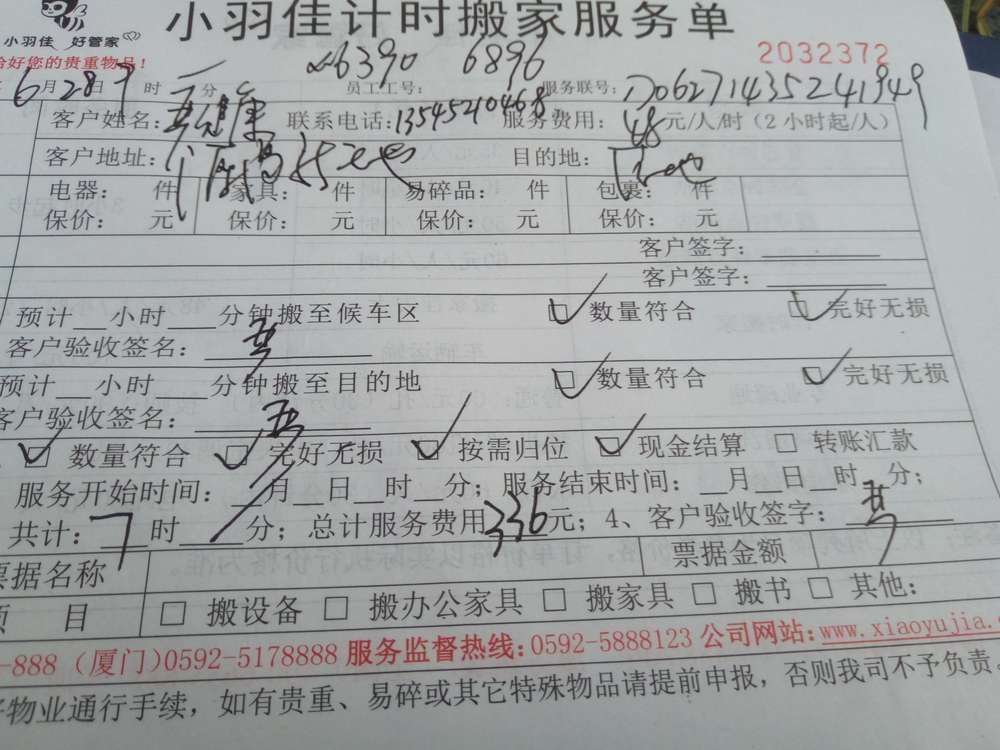 小羽佳计时搬家服务单
小羽佳 好管家
好您的贵重物品!
2032372
6390 6896
6月28日 时 分 员工工号: 服务联号: 062714352241949
客户姓名: 联系电话:13545210468 服务费用:48元/人/时(2小时起/人)
客户地址: 目的地:
电器: 件 家具: 件 易碎品: 件 包裹: 件
保价: 元 保价: 元 保价: 元 保价: 元
客户签字:
客户签字:
预计__小时___分钟搬至候车区 ☑数量符合 ☑完好无损
客户验收签名:
预计__小时___分钟搬至目的地 ☑数量符合 ☑完好无损
客户验收签名:
☑数量符合 ☑完好无损 ☑按需归位 ☑现金结算 □转账汇款
服务开始时间:__月__日__时__分;服务结束时间:__月__日__时__分;
共计:7时 分;总计服务费用336元;4、客户验收签字:
票据名称 票据金额
项 目 □搬设备 □搬办公家具 □搬家具 □搬书 □其他:
-888 (厦门)0592-5178888 服务监督热线:0592-5888123 公司网站:www.xiaoyujia.
好物业通行手续,如有贵重、易碎或其它特殊物品请提前申报,否则我司不予负责。